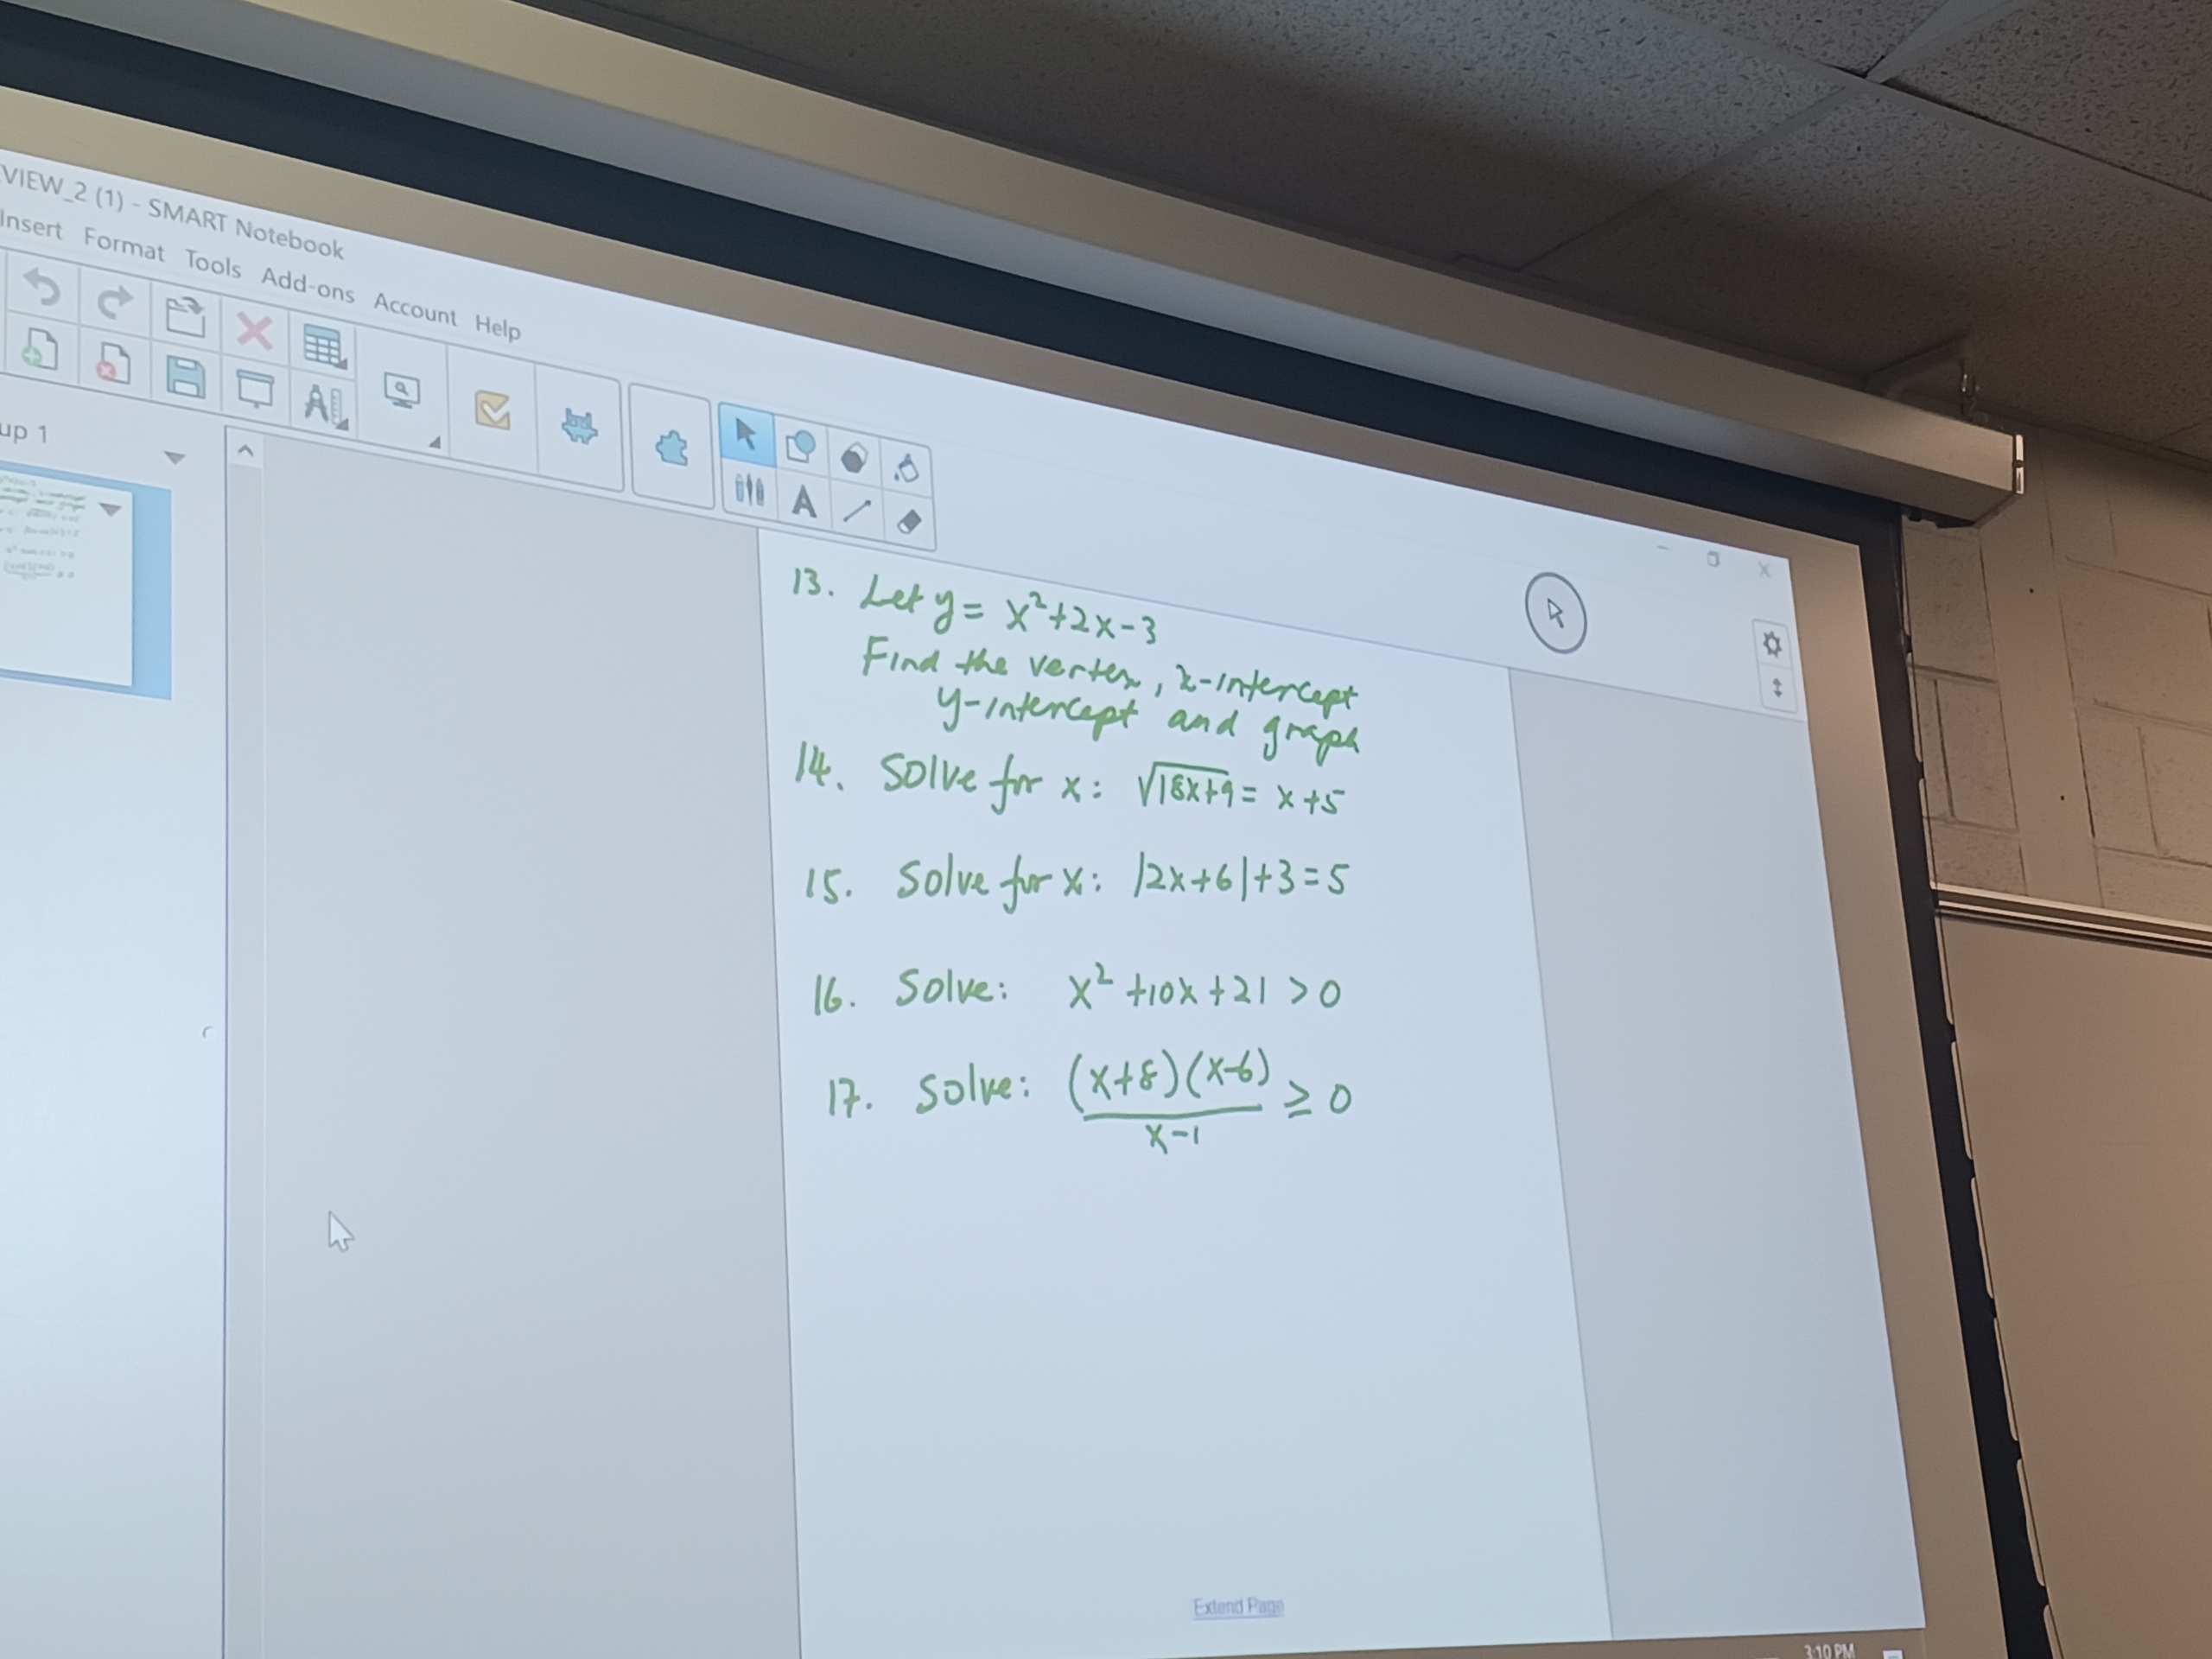 VIEW_2 (1) - SMART Notebook
Insert Format Tools Add-ons Account Help
up 1
13. Let y = x²+2x-3
Find the vertex, x-intercept
y-intercept and graph
14. Solve for x: √(18x+9) = x+5
15. Solve for x: |2x+6|+3=5
16. Solve: x² +10x+21 >0
17. Solve: (x+8)(x-6)
≥ 0
x-1
Extend Page
3:10 PM